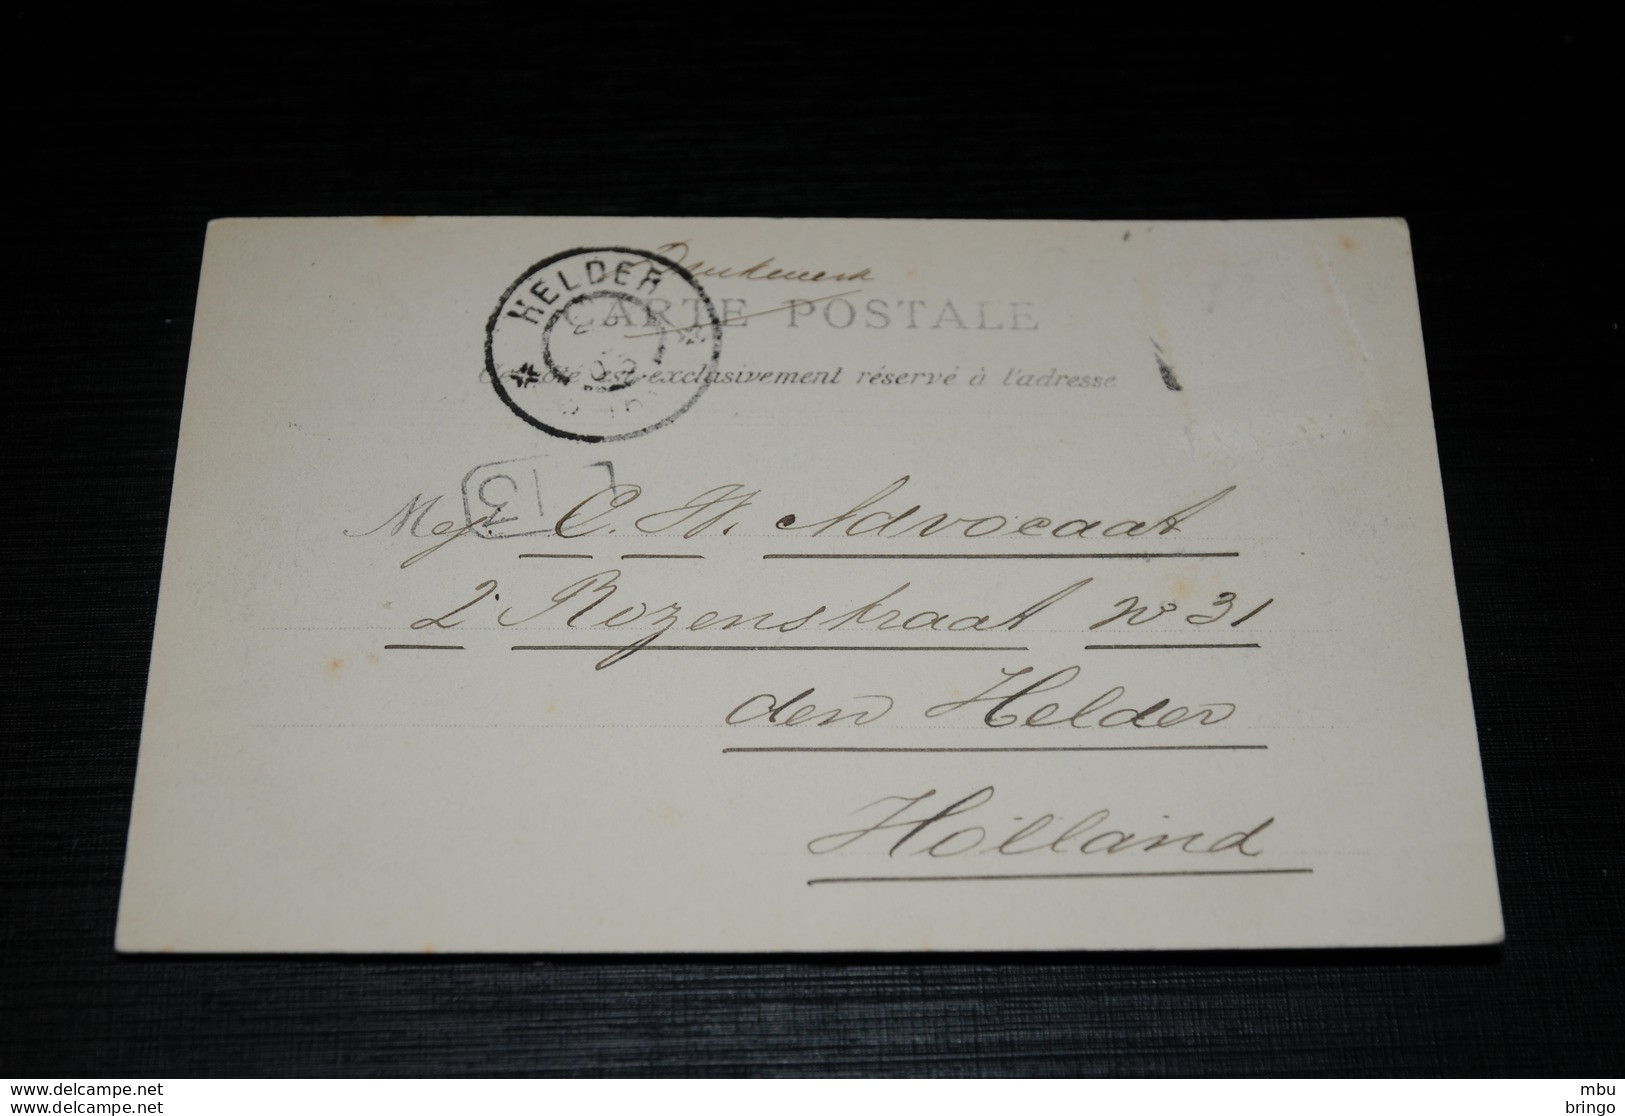 Drukwerk
HELDER
CARTE POSTALE
Ce côté est exclusivement réservé à l'adresse
13
Mej. C. H. Advocaat
2e Rozenstraat No 31
den Helder
Holland
www.delcampe.net mbu
www.delcampe.net bringo